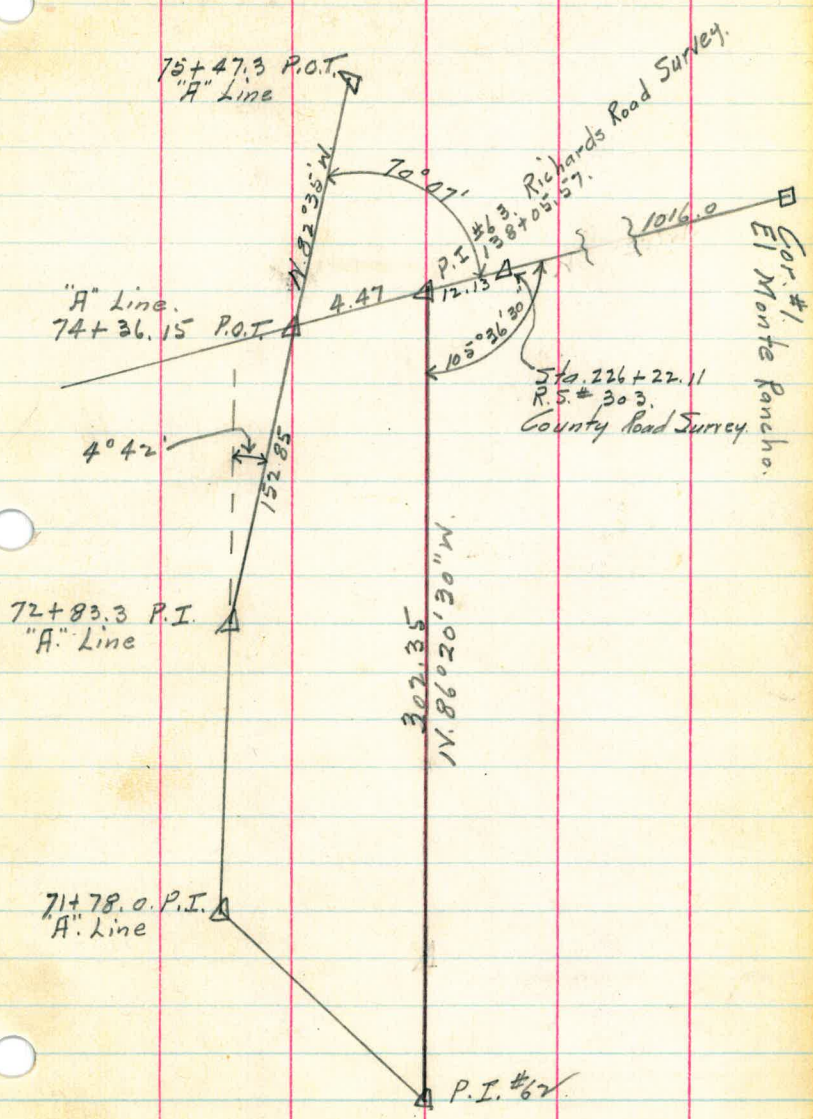 75+47.3 P.O.T.
"A" Line
N.82°35'W.
70°07'
P.I #63. Richards Road Survey.
138+05.57.
1016.0
Cor. #1.
El Monte Rancho.
"A" Line.
74+36.15 P.O.T.
4.47
12.13
105°36'30"
Sta. 226+22.11
R.S.# 303.
County Road Survey.
4°42'
152.85
72+83.3 P.I.
"A." Line
302.35
N.86°20'30"W.
71+78.0. P.I.
"A". Line
P.I. #62